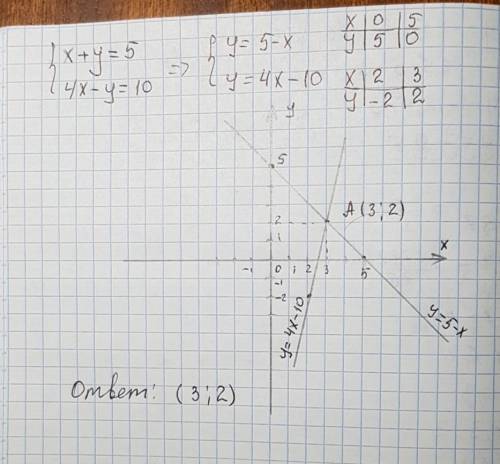 { x+y=5 => { y=5-x
{ 4x-y=10 { y=4x-10
x | 0 | 5
y | 5 | 0
x | 2 | 3
y | -2 | 2
y
5
A (3;2)
2
1
x
-1 0 1 2 3 5
-1
-2
y=4x-10
y=5-x
Ответ: (3;2)